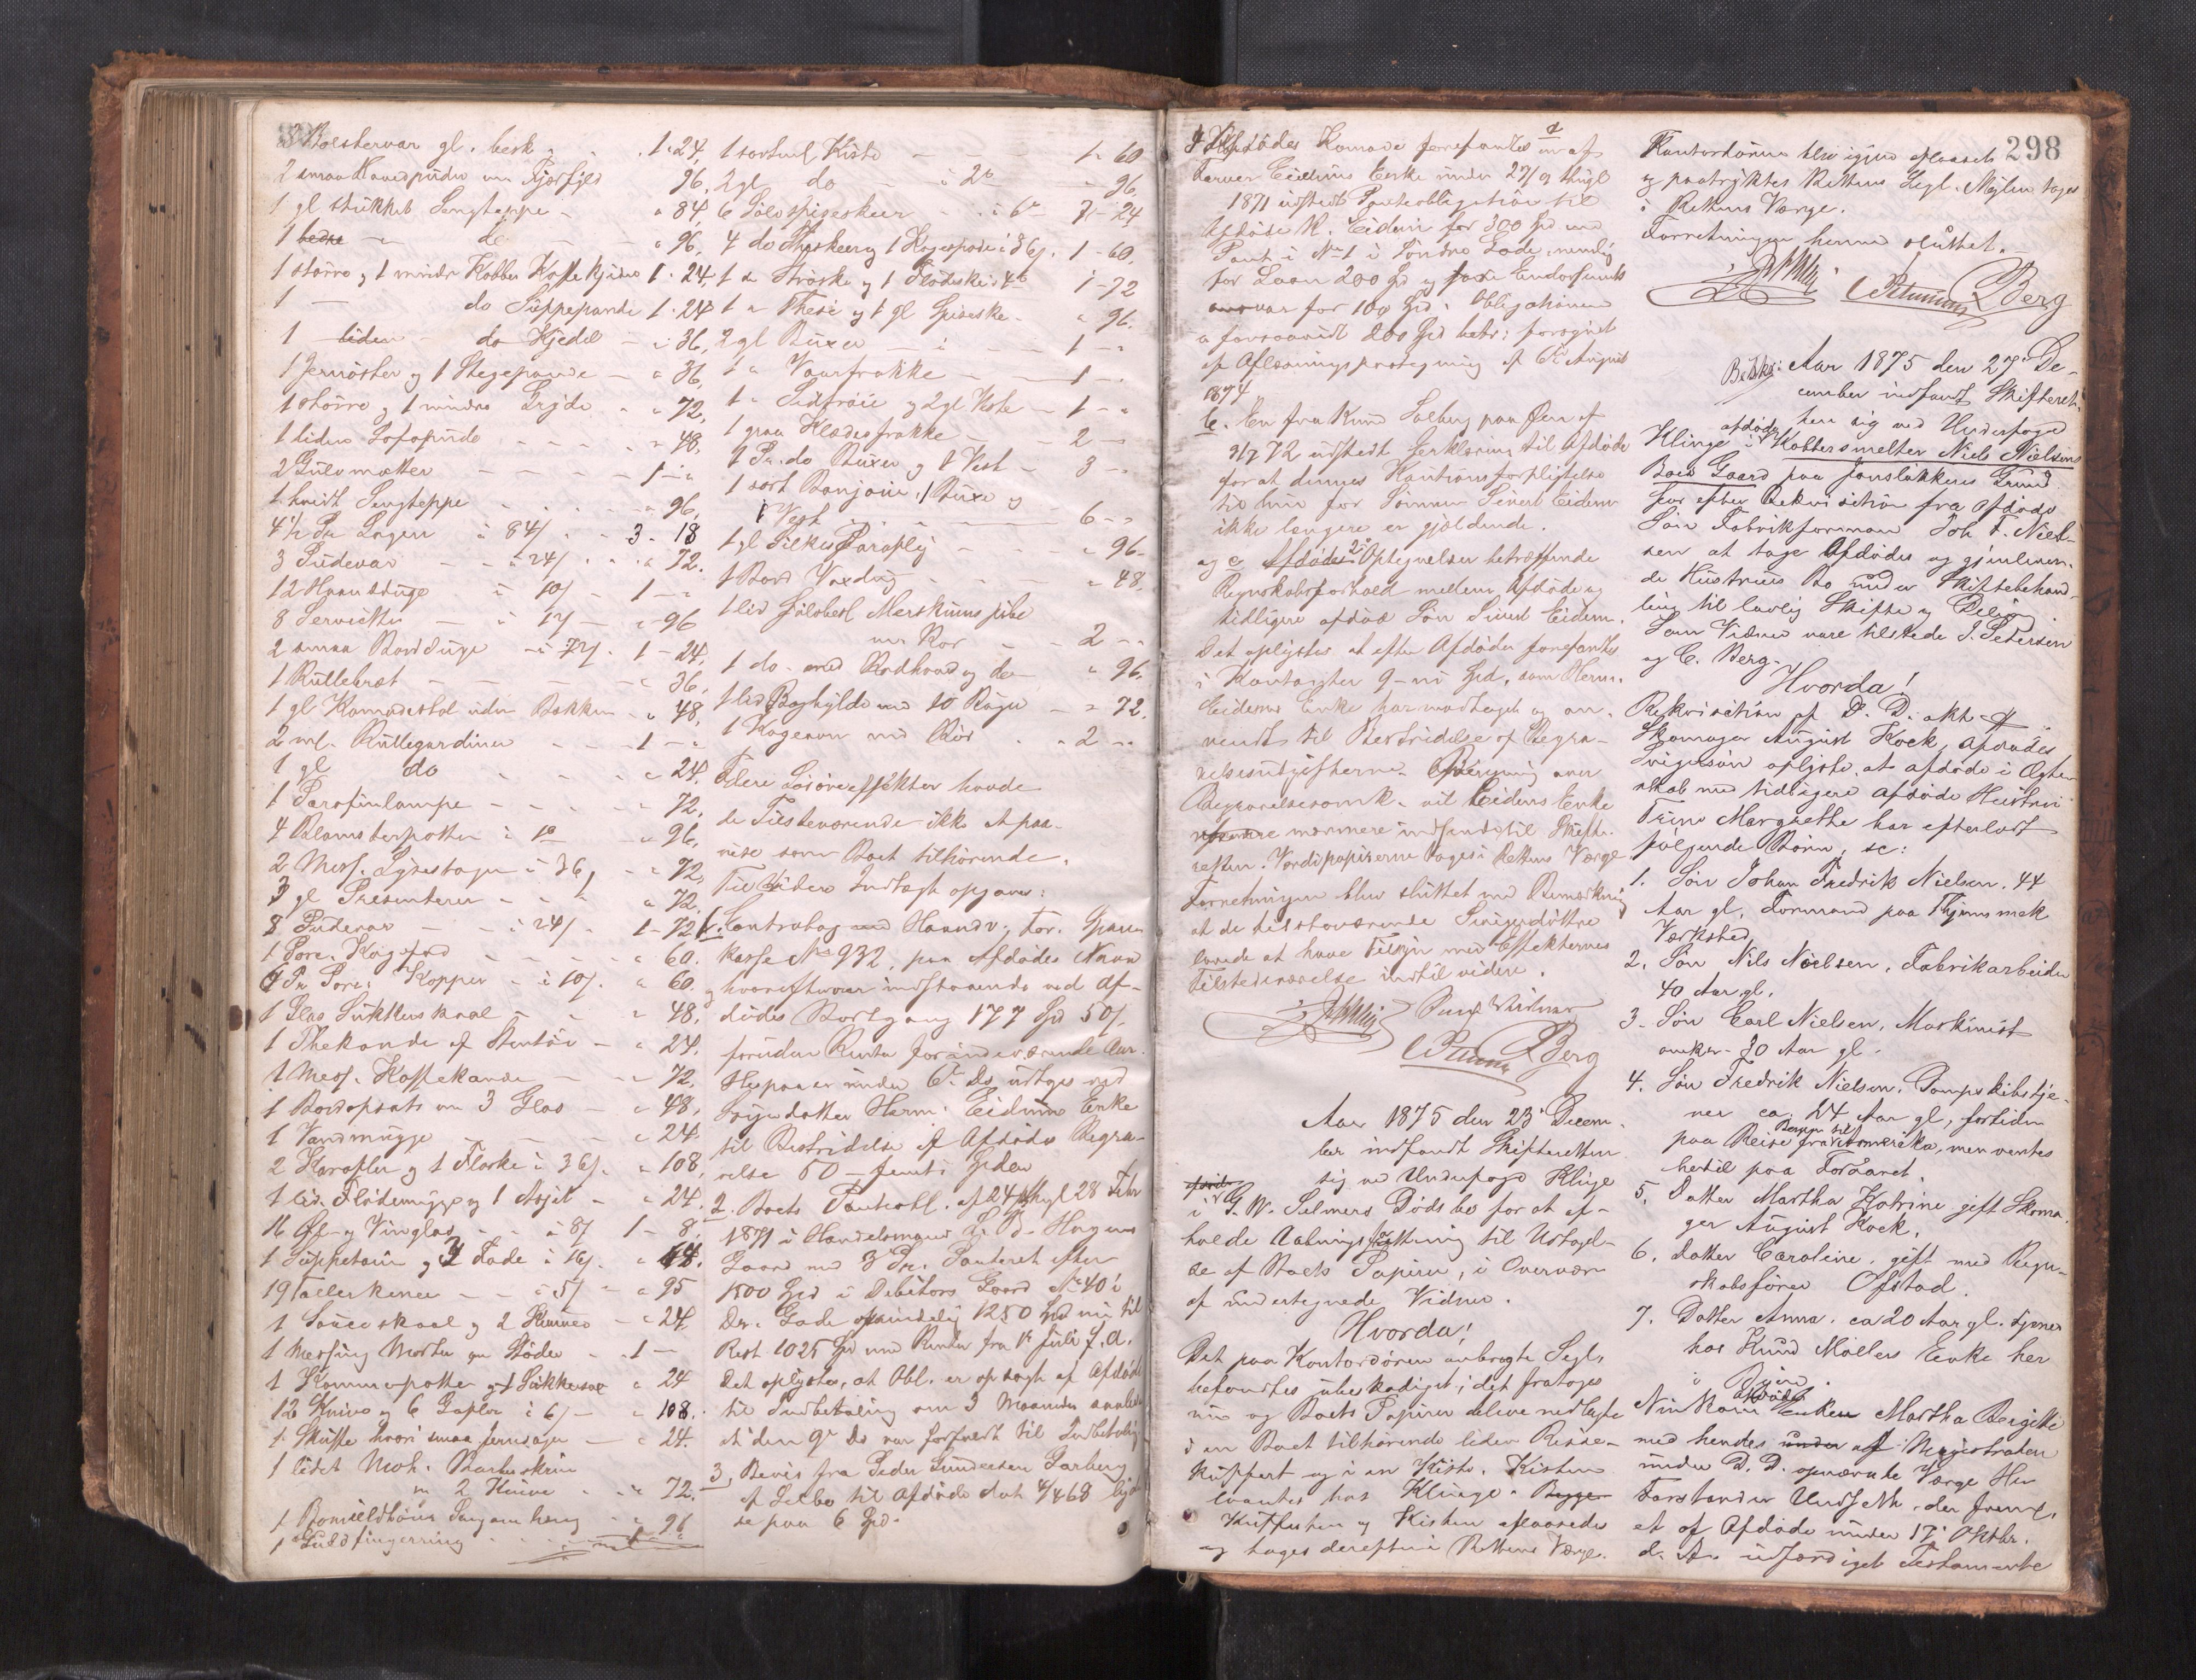 3 Bolstervar gl. besk. 1-24
2 smaa Hovedpuder m Fjærfyld 96.
1 gl stukket Sengteppe - " 84.
1 bedre - do - " 96.
1 større og 1 mindre Kobber Kaffekjedel 1-24.
1 - do Suppepande 1-24
1 liden - do Kjedel - " 36.
1 Jernøster og 1 Stegepande - " 36.
1 større og 1 mindre Gryde " 72.
1 liden Sofapude " 48.
2 Gulvmatter - 1 - "
1 hvidt Sengteppe " 96.
4 1/2 Par Lagen à 84/ 3-18
3 Pudevar à 24/ " 72.
12 Haandduge à 10/ 1 - "
8 Servietter à 12/ " 96
2 smaa Bordduge à 72/ 1-24.
1 Rullebræt " 36.
1 gl Komodestol uden Bakker " 48.
2 Rullegardiner 1 - "
1 gl do " 24.
1 Parafinlampe " 72.
4 Blomsterpotter " 96.
2 Mess. Lysestager à 36/ " 72.
3 gl Presenterer " 72.
8 Pudevar à 24/ 1-72
1 Porc. Kagefad " 60.
6 Pr Porc. Kopper à 10/ " 60.
1 Glas Sukkerskaal " 48.
1 Thekande af Stentøi " 24.
1 Mess. Kaffekande " 72.
1 Bordopsats m 3 Glas " 48.
1 Vandmugge " 24.
2 Karafler og 1 Flaske à 36/ " 108.
1 lid. Flødemugge og 1 Asjet " 24.
16 Øl- og Vinglas à 8/ 1-8.
1 Suppeterin og 3 Fade à 16/ " 64.
19 Tallerkener à 5/ " 95
1 Sauceskaal og 2 " 24.
1 Messing Morter m Støder 1 -
1 og 1 Sukker " 24
12 Knive og 6 Gafler à 6/ " 108.
1 Skuffe hvori smaa Jernsager " 24.
1 lidet Mah. Barberskrin
m 2 Knive " 72.
1 " 96
1 Guldfingerring
1 sortml Kiste 1-60
2 gl do à 2 " 96
6 Sølvspiseskeer 31-24
4 do Theskeer og 1 Kagespade à 36/ 1-60.
1 " Strøske og 1 Flødeske 1-72
1 " Thesi og 1 gl Spiseske " 96.
2 gl Buxer 1 - "
1 " Vaarfrakke 1 - "
1 " Sidtrøie og 2 gl Veste 1 - "
1 graa Klædesfrakke 2 - "
1 Pr. do Buxer og 1 Vest 3 - "
1 sort Bonjour, 1 Buxe og
1 Vest 6 - "
1 gl Silkes Paraply " 96
1 Bord Voxdug " 48.
1 lid Sølvbesl Merskumspibe
m Rør 2 - "
1 do med Rødhoved og do " 96.
1 lid Boghylde med 10 Bøger " 72.
1 Kogeovn med Rør 2 - "
Flere Løsøreeffekter havde
de Tilstedeværende ikke at paa-
vise som Boet tilhørende.
Til videre Indtægt opgaves:
1. Contrabog med Haandv. For. Spare-
kasse No 932, paa Afdødes Navn
hvorefter var indstaaende ved Af-
dødes Bortgang 177 Spd 50/
foruden Renter for indeværende Aar.
Herpaa er under 6te Ds udtaget ved
Svigerdatter Herm. Eidems Enke
til Bestridelse af Afdødes Begra-
velse 50 - femti Spdlr
2. Boets Panteobl. af 24/1 thgl 28 Febr
1871 i Handelsmand L. B. Hagens
Gaard med 3 Pr. Panteret efter
1500 Spd i Debitors Gaard No 40 i
Dr. Gade oprindelig 1250 Spd nu til
Rest 1025 Spd med Renter fra 1st Juli d. A.
Det oplystes, at Obl. er opsagt af Afdøde
til Indbetaling om 3 Maaneder
den 9de Ds var forfaldt til Indbetaling
3. Bevis fra Peder Gundersen Garberg
af Selbo til Afdøde dat 4/4 68 lyden-
de paa 6 Spd.
I Afdødes Komode forefantes en af
Farver Eidems Enke under 27/9 thingl
1871 udstedt Panteobligation til
Afdøde N. Eidem for 300 Spd med
Pant i No 1 i Søndre Gade, nemlig
for Laan 200 Spd og Endossements
ansvar for 100 Spd. Obligationen
er forsaavidt 200 Spd betr: forsynet
af Aflæsningspaategning af 6te August
1874.
b. En fra Knud Solberg paa Øen af
9/7 72 udstedt Erklæring til Afdøde
for at dennes Kautionsforpligtelse
til ham for Sønnen Sivert Eidem
ikke længere er gjældende.
og c. Afdødes 2de Optegnelser betræffende
Regnskabsforhold mellem Afdøde og
tidligere afdøde Søn Sivert Eidem.
Det oplystes at efter Afdøde forefantes
i Kontanter 9 - ni Spd, som Herm.
Eidems Enke har modtaget og an-
vendt til Bestridelse af Begra-
velsesudgifterne. Opregning over
Begravelsesomk. vil Eidems Enke
nærmere indsende til Skifte-
retten. Værdipapirerne toges i Rettens Værge
Forretningen blev sluttet med Bemærkning
at de tilstedeværende Svigerdøttre
lovede at have Tilsyn med Effekternes
Tilstedeværelse indtil videre.
Som Vidner
Berg
Aar 1875 den 23 Decem-
ber indfandt Skifteretten
sig ved Underfoged Klinge
i G. W. Selmers Dødsbo for at af-
holde Aabningsforretning til Udtagel-
se af Boets Papirer, i Overvær
af undertegnede Vidner.
Hvorda!
Det paa Kontordøren anbragte Segl,
befandtes ubeskadiget; det fratoges
nu og Boets Papirer bleve nedlagte
i en Boet tilhørende liden Reise-
kuffert og i en Kiste. Kisten
hos Klinge.
Kufferten og Kisten aflaasedes
og toges derefter i Rettens Værge.
298
Kontordøren blev igjen aflaaset
og paatryktes Rettens Segl. Nøglen toges
i Rettens Værge.
Forretningen hermed sluttet.
Berg
Aar 1875 den 27de De-
cember indfandt Skifteret-
ten sig ved Underfoged
Klinge i afdøde Kobbersmelter Niels Nielsens
Boes Gaard paa Grund
for efter Rekvisition fra Afdødes
Søn Fabrikformand Joh F. Niel-
sen at tage Afdødes og gjenleven-
de Hustrues Bo under Skiftebehand-
ling til lovlig Skifte og Deling.
Som Vidner vare tilstede J. Pedersen
og C. Berg.
Hvorda!
Rekvisition af D. D. akt.
Skomager August Kock, Afdødes
Svigersøn oplyste, at afdøde i Ægte-
skab med tidligere afdøde Hustru
Trine Margrethe har efterladt
følgende Børn, sc:
1. Søn Johan Fredrik Nielsen, 44
Aar gl. Formand paa Thjems mek
Værksted
2. Søn Nils Nielsen, Fabrikarbeider
40 Aar gl.
3. Søn Carl Nielsen, Maskinist
omkr. 30 Aar gl.
4. Søn Fredrik Nielsen, Dampskibstje-
ner ca. 24 Aar gl, fortiden
paa Reise fra Amerika, men ventes
hertil paa Foraaret.
5. Datter Martha Katrine gift Skoma-
ger August Kock.
6. Datter Caroline, gift med Regn-
skabsfører Ofstad.
7. Datter Anna. ca 20 Aar gl. tjener
hos Knud Møllers Enke her
i Byen.
Nu kom Afdødes Enken Martha Bergitte
med hendes af Magistraten
under D. D. opnævnte Værge Hr
Forstander Undseth, der freml.
et af Afdøde under 17 Oktbr.
d. A. udfærdiget Testamente